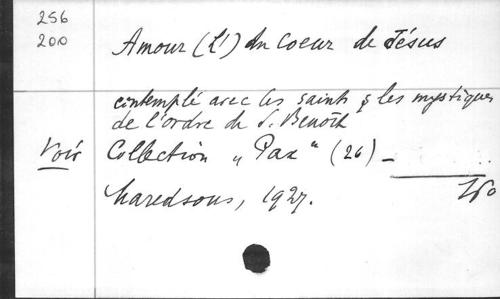 256
200
Amour (L') du Coeur de Jésus
contemplé avec les saints & les mystiques
de l'ordre de S. Benoît
Voir Collection "Pax" (26) –
Maredsous, 1927.